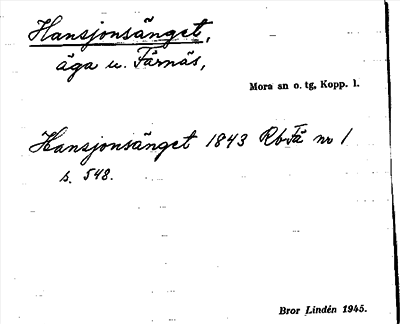 Hansjonsänget,
äga u. Färnäs,
Mora sn o. tg, Kopp. l.
Hansjonsänget 1843 RbFä nr 1
s. 548.
Bror Lindén 1945.